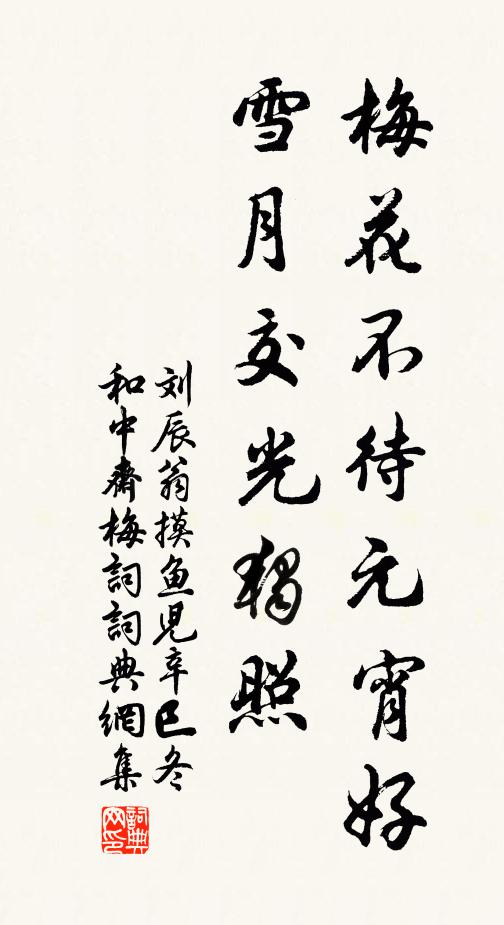 梅花不待元宵好
雪月交光独照
刘辰翁摸鱼儿辛巳冬
和中齋梅詞詞典網集
詞典
网印